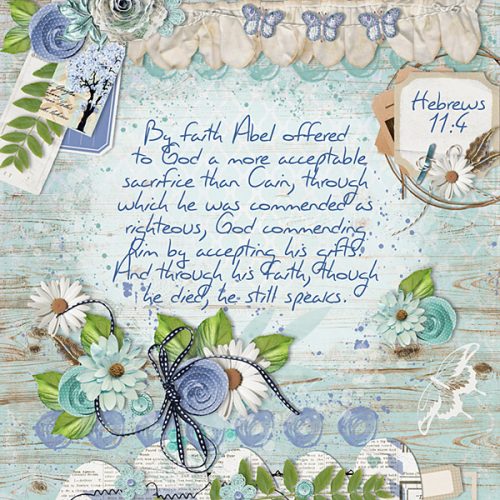 Hebrews
11:4
By faith Abel offered
to God a more acceptable
sacrifice than Cain, through
which he was commended as
righteous, God commending
him by accepting his gifts.
And through his faith, though
he died, he still speaks.